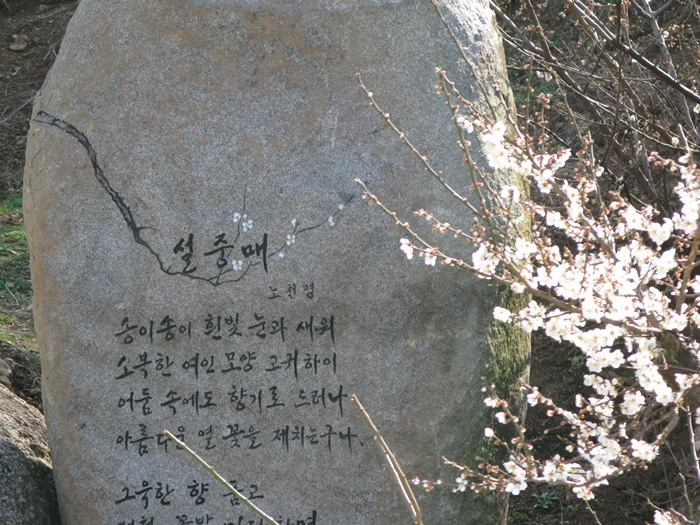 설중매
노천명
송이송이 흰빛 눈과 새워
소복한 여인 모양 고귀하이
어둠 속에도 향기로 드러나
아름다운 열 꽃을 제치는구나.
그윽한 향 품고